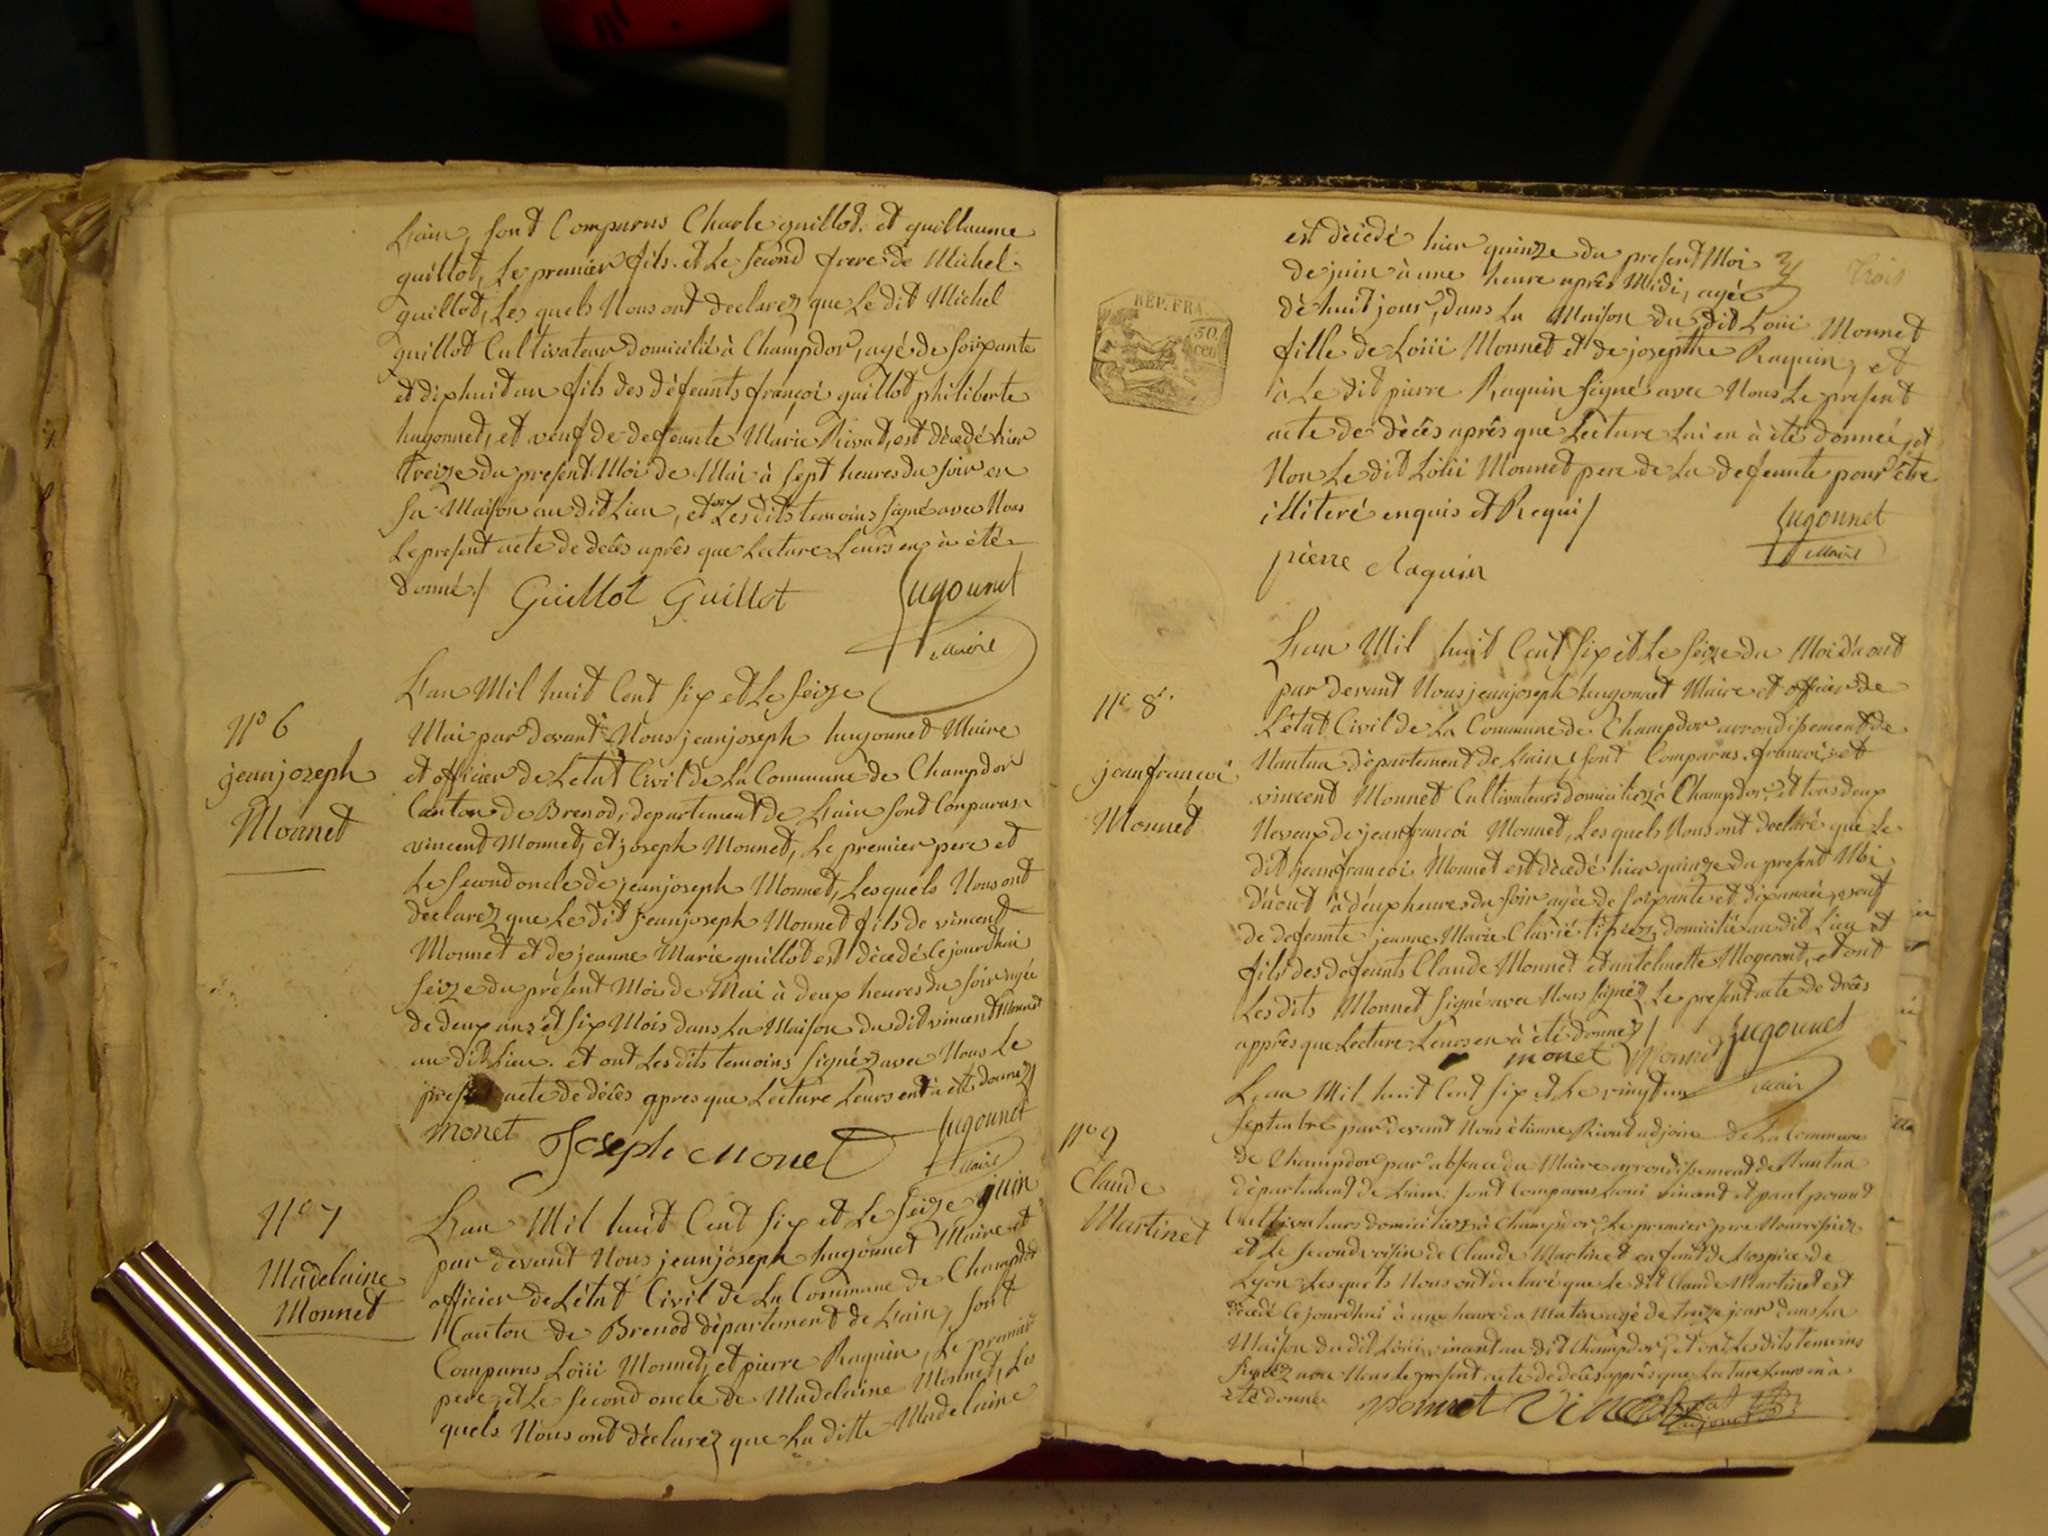 Lain, sont Comparus Charle guillot et guillaume
guillot, Le premier fils et Le second frere de Michel
guillot, Les quels Nous ont declarez que Le dit Michel
guillot Cultivateur domicilié à Champdor, agé de soixante
et dix huit an fils des défeunts françoi guillot philiberte
hugonnet, et veuf de defeunte Marie Rivat, est décedé hier
treize du present Moi de Mai à sept heures du soir en
sa Maison au dit Lieu, et ont Les dits temoins signé avec Nous
Le present acte de decès après que Lecture Leurs en à été
donné / Guillot Guillot hugonnet
Maire
N° 6
jeanjoseph
Monnet
Lan Mil huit Cent six et Le seize
Mai par devant Nous jeanjoseph hugonnet Maire
et officier de Letat Civil de La Commune de Champdor
Canton de Brenod, departement de Lain sont Comparus
vincent Monnet, et joseph Monnet, Le premier pere et
Le second oncle de jeanjoseph Monnet, Les quels Nous ont
declarez que Le dit jeanjoseph Monnet fils de vincent
Monnet et de jeanne Marie guillot est décedé Cejourdhui
seize du présent Moi de Mai à deux heures du soir agée
de deux ans et six Mois dans La Maison du dit vincent Monnet
au dit Lieu. et ont Les dits temoins signéz avec Nous Le
present acte de décès apres que Lecture Leurs en à été donnez
monet Joseph monet hugonnet
Maire
N° 7
Madelaine
Monnet
Lan Mil huit Cent six et Le seize juin
par devant Nous jeanjoseph hugonnet Maire et
officier de Létat Civil de La Commune de Champdor
Canton de Brenod département de Lain, sont
Comparus Loüi Monnet, et pierre Raquin, Le premier
pere, et Le second oncle de Madelaine Monnet, Les
quels Nous ont déclarez que La ditte Madelaine
trois
est décedé hier quinze du present Moi
de juin à une heure après Midi, agée
REP. FRA
50
cen
dè huit jour, dans La Maison du dit Loüi Monnet
fille de Loüi Monnet et de josephe Raquin, et
à Le dit pierre Raquin signé avec Nous Le present
acte de décès après que Lecture Lui en à été donnée, et
Non Le dit Loüi Monnet pere de La defeunte pour être
illiteré enquis et Requi /
hugonnet
Maire
pierre Raquin
N° 8
jeanfrançoi
Monnet
Lan Mil huit Cent six et Le seize du Moi daout
par devant Nous jeanjoseph hugonnet Maire et officier de
Létat Civil de La Commune de Champdor arrondissement de
Nantua département de Lain sont Comparus françoi et
vincent Monnet Cultivateurs domiciliez à Champdor et tous deux
Neveux de jeanfrançoi Monnet, Les quels Nous ont declaré que Le
dit jeanfrançoi Monnet est décedé hier quinze du present Moi
daout à deux heures du soir agée de soixante et dix années, veuf
de defeunte jeanne Marie Clavié domicilié au dit Lieu et
fils des defeunts Claude Monnet et antelmette Mogerant, et ont
Les dits Monnet signé avec Nous signéz Le present acte de décès
après que Lecture Leurs en à été donnéz /
monet Monnet hugonnet
Maire
N° 9
Claude
Martinet
Lan Mil huit Cent six et Le vingt un
septembre par devant Nous étienne Rivat adjoint de La Commune
de Champdor par absence du Maire arrondissement de Nantua
département de Lain. sont Comparus Loui vincent et paul ponnet
Cultivateurs domiciliez à Champdor, Le premier pere Nourrissier
et Le second voisin de Claude Martinet enfant de Lospice de
Lyon Les quels Nous ont declaré que Le dit Claude Martinet est
décedé Cejourdhui à une heure du Matin agé de treize jour dans La
Maison du dit Loüi vincent au dit Champdor, et ont Les dits temoins
signéz avec Nous Le present acte de décès après que Lecture Leurs en à
été donné. ponnet Vincent